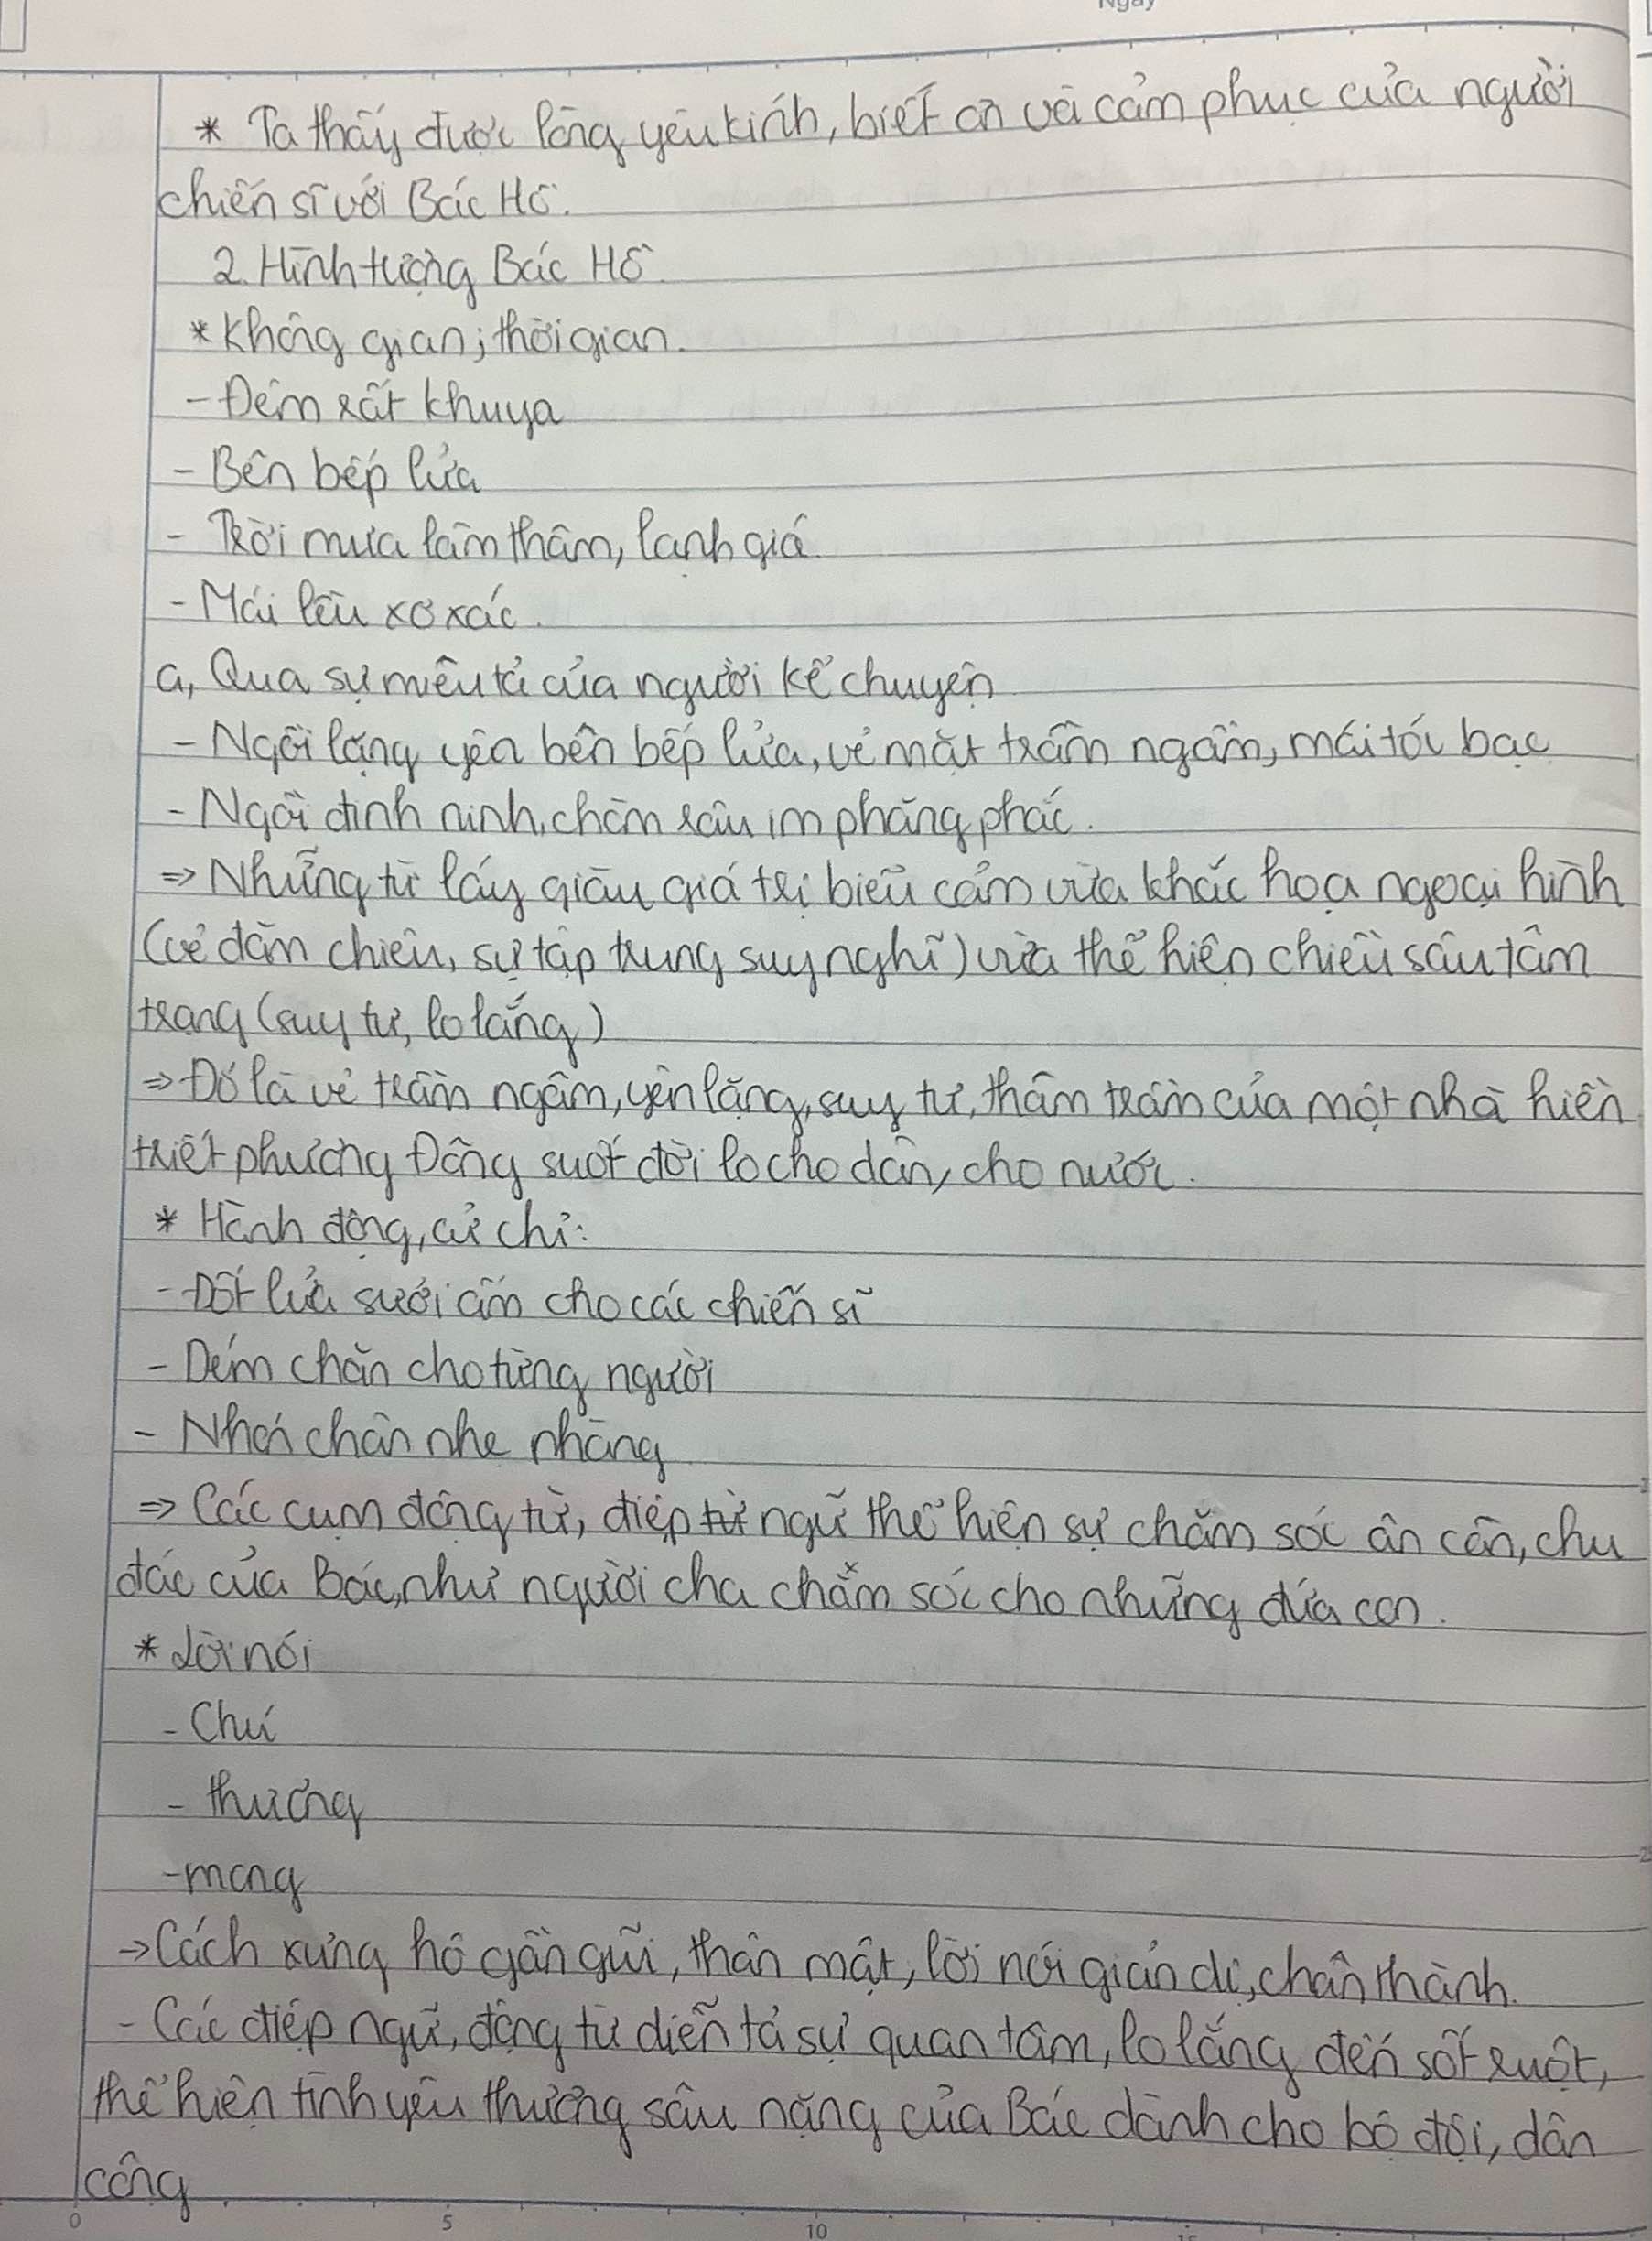 Ngày
* Ta thấy được lòng yêu kính, biết ơn và cảm phục của người
chiến sĩ với Bác Hồ.
2. Hình tượng Bác Hồ.
* Không gian; thời gian.
- Đêm rất khuya
- Bên bếp lửa
- Trời mưa lâm thâm, lạnh giá.
- Mái lều xơ xác.
a, Qua sự miêu tả của người kể chuyện
- Ngồi lặng yên bên bếp lửa, vẻ mặt trầm ngâm, mái tóc bạc
- Ngồi đinh ninh, chòm râu im phăng phắc.
=> Những từ láy giàu giá trị biểu cảm vừa khắc họa ngoại hình
(vẻ đăm chiêu, sự tập trung suy nghĩ) vừa thể hiện chiều sâu tâm
trạng (suy tư, lo lắng)
=> Đó là vẻ trầm ngâm, yên lặng, suy tư, thâm trầm của một nhà hiền
triết phương Đông suốt đời lo cho dân, cho nước.
* Hành động, cử chỉ:
- Đốt lửa sưởi ấm cho các chiến sĩ
- Dém chăn cho từng người
- Nhón chân nhẹ nhàng
=> Các cụm động từ, điệp ngữ thể hiện sự chăm sóc ân cần, chu
đáo của Bác, như người cha chăm sóc cho những đứa con.
* Lời nói
- Chú
- thương
- mong
-> Cách xưng hô gần gũi, thân mật, lời nói giản dị, chân thành.
- Các điệp ngữ, động từ diễn tả sự quan tâm, lo lắng đến sốt ruột,
thể hiện tình yêu thương sâu nặng của Bác dành cho bộ đội, dân
công
0 5 10